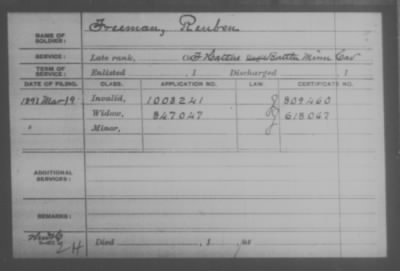 NAME OF SOLDIER: Freeman, Reuben
SERVICE: Late rank, Minn Cav
TERM OF SERVICE: Enlisted , 1 Discharged , 1
DATE OF FILING. CLASS. APPLICATION NO. LAW. CERTIFICATE NO.
1891 Mar 19 Invalid, 1003241 809460
Widow, 847047 618067
" Minor,
ADDITIONAL SERVICES:
REMARKS:
Died , 1